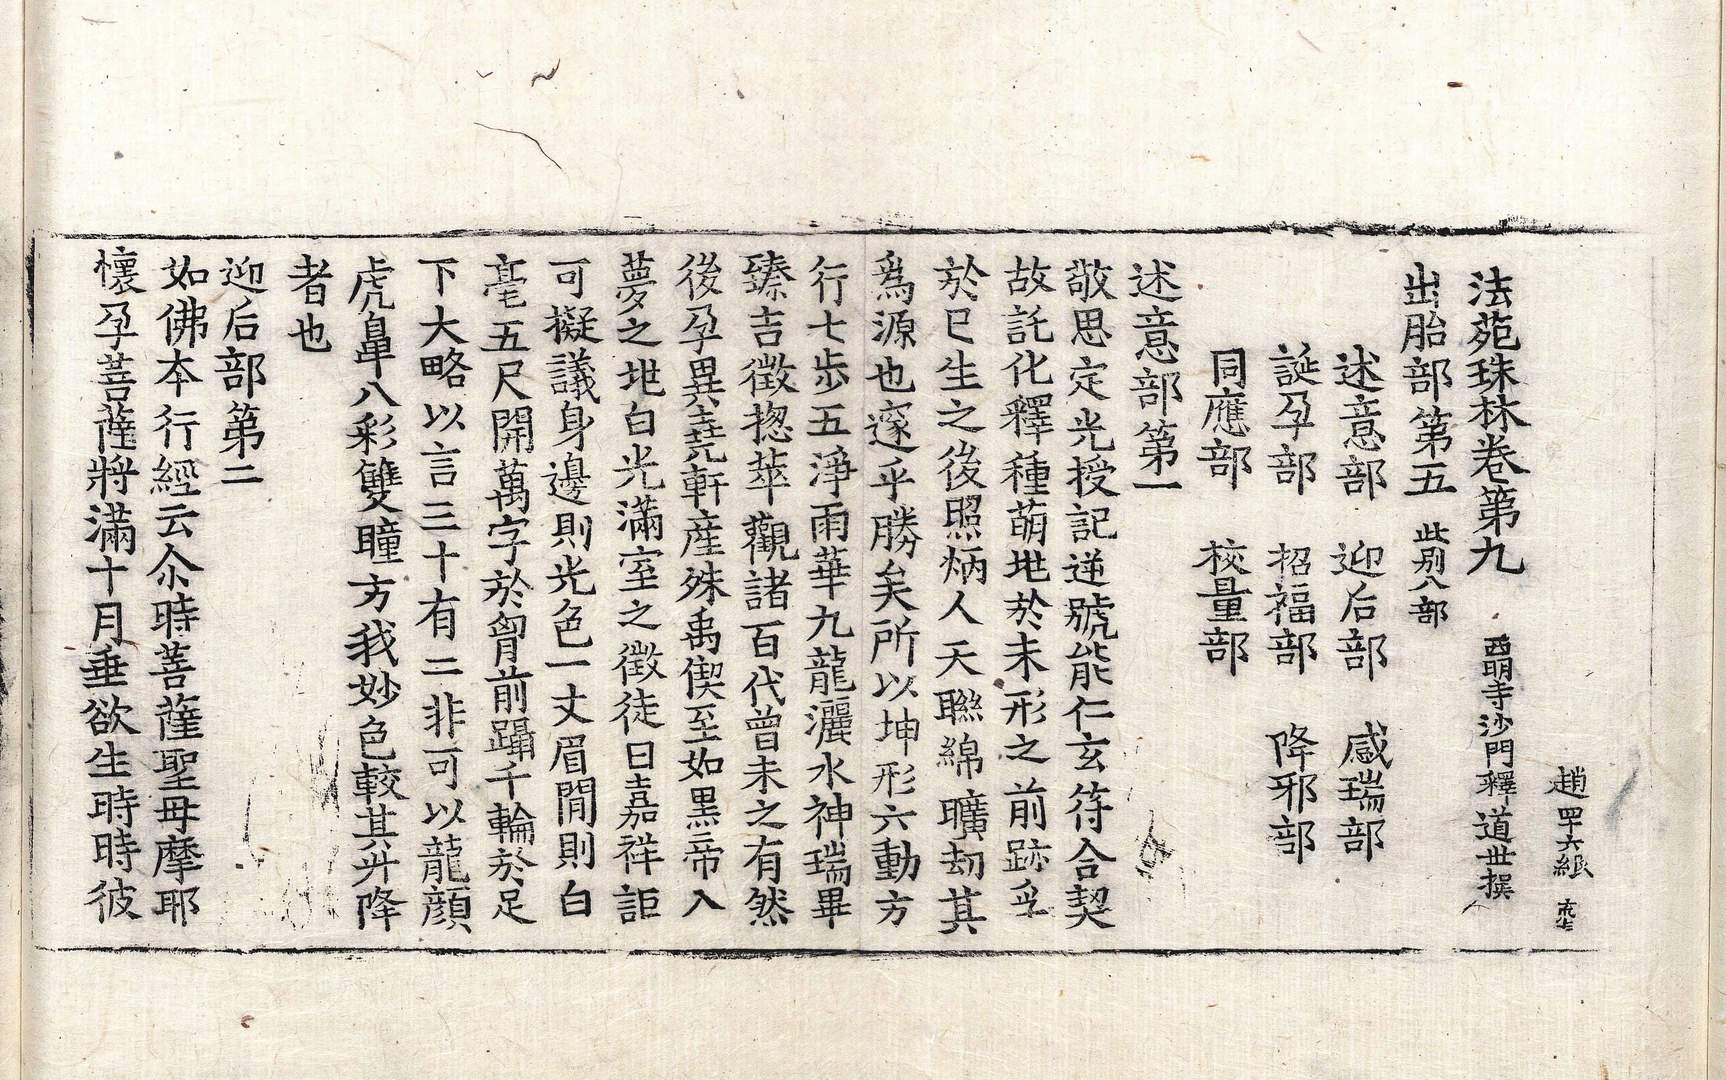 法苑珠林卷第九　西明寺沙門釋道世撰
出胎部第五　此別八部
述意部　迎后部　感瑞部
誕孕部　招福部　降邪部
同應部　校量部
述意部第一
敬思定光授記逆號能仁玄符合契
故託化釋種萌地於未形之前跡孚
於已生之後照炳人天聯綿曠劫其
爲源也邃乎勝矣所以坤形六動方
行七步五淨雨華九龍灑水神瑞畢
臻吉徵揔萃觀諸百代曾未之有然
後孕異堯軒産殊禹偰至如黑帝入
夢之地白光滿室之徵徒曰嘉祥詎
可擬議身邊則光色一丈眉閒則白
毫五尺開萬字於胷前躡千輪於足
下大略以言三十有二非可以龍顔
虎鼻八彩雙瞳方我妙色較其升降
者也
迎后部第二
如佛本行經云尒時菩薩聖母摩耶
懷孕菩薩將滿十月垂欲生時時彼